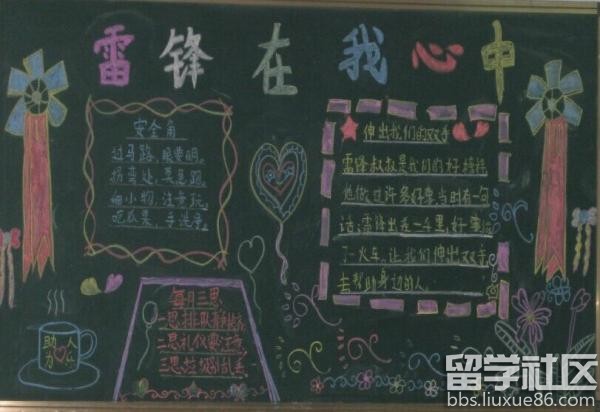 雷锋在我心中
安全角
过马路,眼要明。
拐弯处,莫急跑。
细小物,注意玩。
吃瓜果,手洗净。
伸出我们的双手
雷锋叔叔是我们的好榜样
他做过许多好事,当时有一句
话:雷锋出差一千里,好事做
了一火车,让我们伸出双手,
去帮助身边的人。
每日三思
一思排队
二思礼仪
三思垃圾
助人
为
留学社区
bbs.liuxue86.com